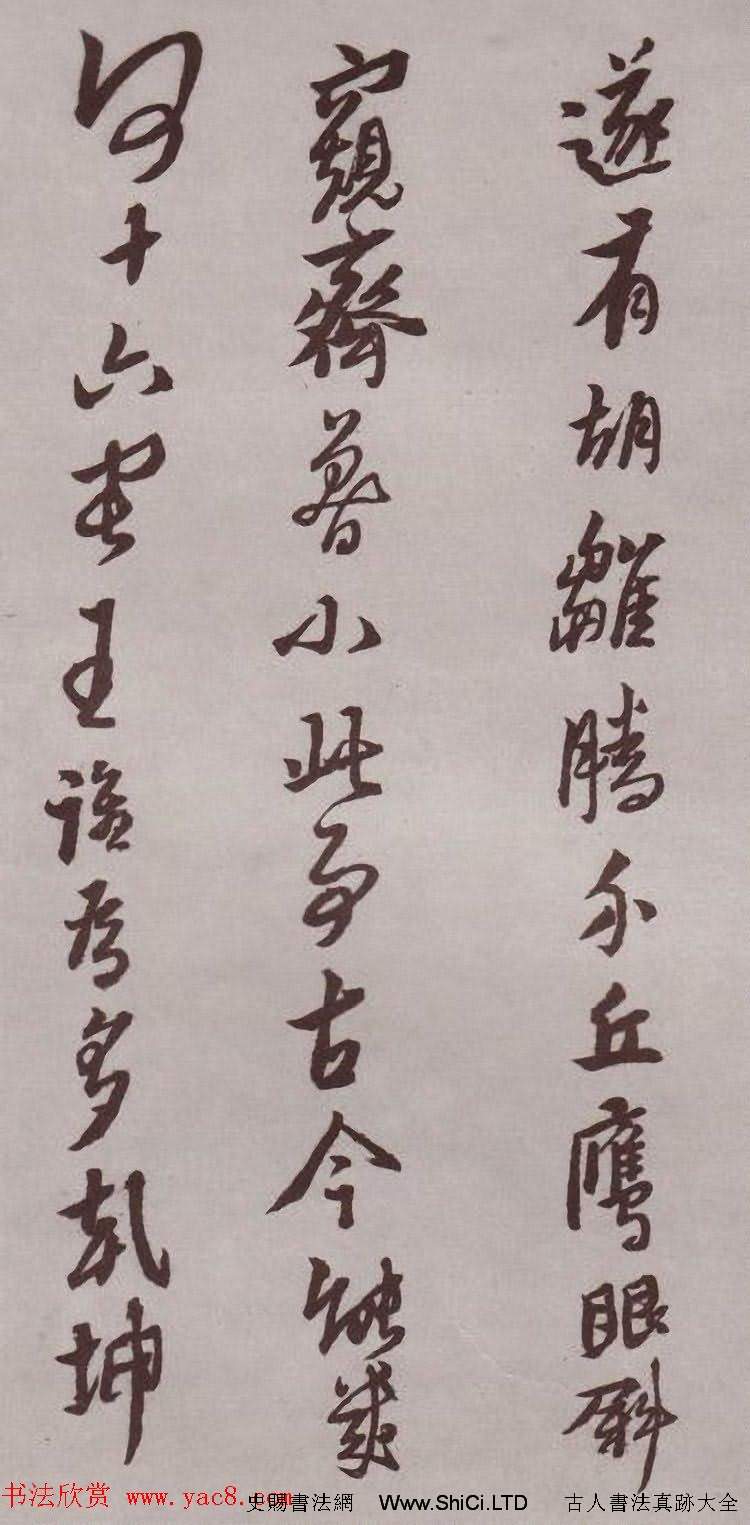 遂有胡雛騰介丘鷹眼斜
窺齊魯小此事古今能幾
何十六王誰為多乾坤
书法欣赏 www.yac8.com
史賜書法網 Www.ShiCi.LTD 古人書法真跡大全